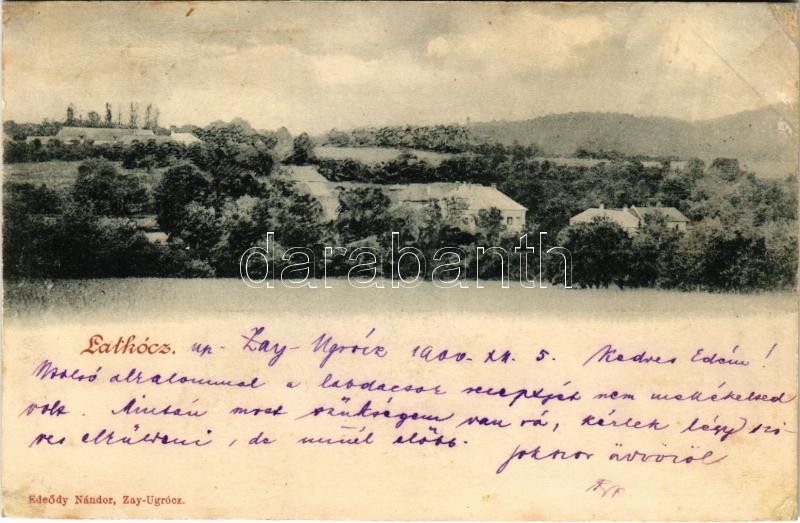 darabanth
Latkócz. up. Zay-Ugrócz 1900. XII. 5. Kedves Edém!
Utolsó alkalommal a labdacsok receptjét nem mellékelted
volt. Miután most szükségem van rá, kérlek légy szi-
ves elküldeni, de minél előbb.
sokszor üdvözöl
Edeődy Nándor, Zay-Ugrócz.